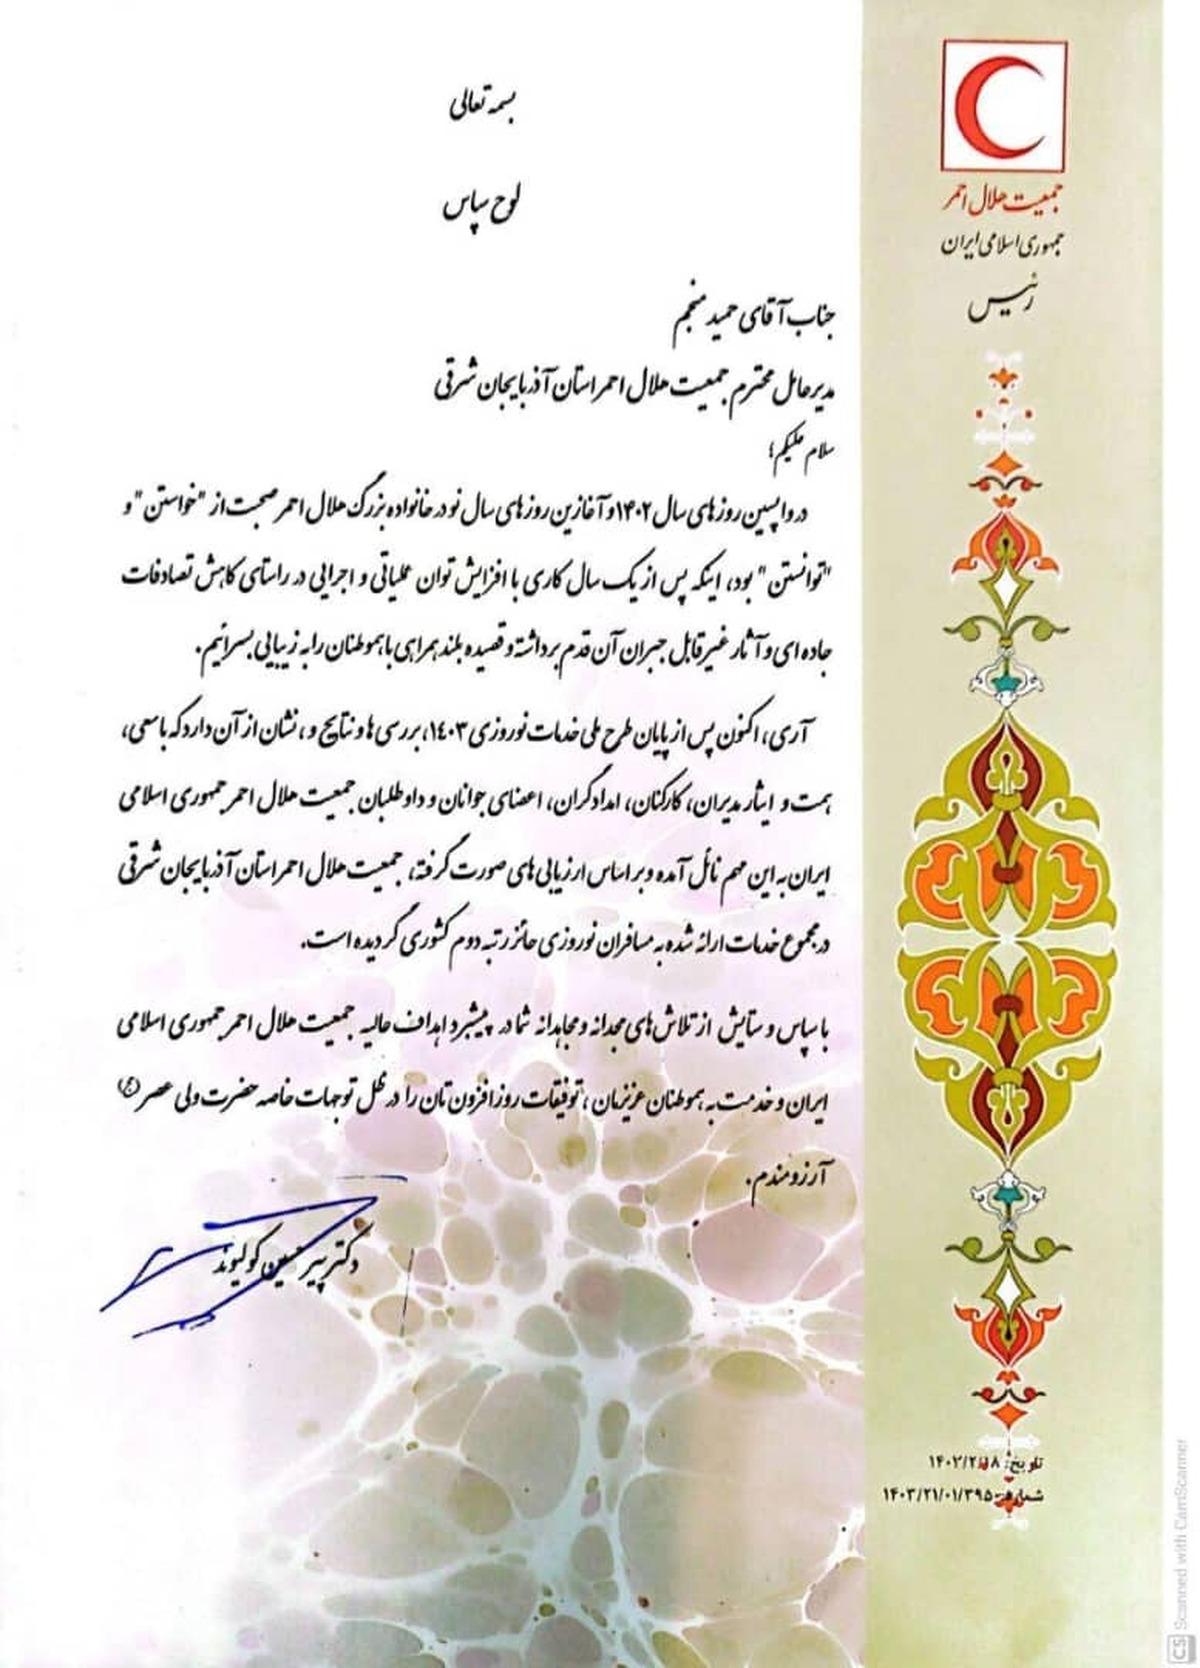 جمعیت هلال احمر
جمهوری اسلامی ایران
رئیس
بسمه تعالی
لوح سپاس
جناب آقای حمید منجم
مدیرعامل محترم جمعیت هلال احمر استان آذربایجان شرقی
سلام علیکم؛
در واپسین روزهای سال ۱۴۰۲ و آغازین روزهای سال نو در خانواده بزرگ هلال احمر صحبت از "خواستن" و
"توانستن" بود، اینکه پس از یک سال کاری با افزایش توان عملیاتی و اجرایی در راستای کاهش تصادفات
جاده ای و آثار غیر قابل جبران آن قدم برداشته و قصیده بلند همراهی با هموطنان را به زیبایی بسرائیم.
آری، اکنون پس از پایان طرح ملی خدمات نوروزی ۱۴۰۳، بررسی ها و نتایج و، نشان از آن دارد که با سعی،
همت و ایثار مدیران، کارکنان، امدادگران، اعضای جوانان و داوطلبان جمعیت هلال احمر جمهوری اسلامی
ایران به این مهم نائل آمده و بر اساس ارزیابی های صورت گرفته، جمعیت هلال احمر استان آذربایجان شرقی
در مجموع خدمات ارائه شده به مسافران نوروزی حائز رتبه دوم کشوری گردیده است.
با سپاس و ستایش از تلاش های مجدانه و مجاهدانه شما در پیشبرد اهداف عالیه جمعیت هلال احمر جمهوری اسلامی
ایران و خدمت به هموطنان عزیزمان، توفیقات روزافزون تان را در ظل توجهات خاصه حضرت ولی عصر (عج)
آرزومندم.
دکتر پیرحسین کولیوند
تاریخ: ۱۴۰۳/۲/۱۸
شماره: ۱۴۰۳/۲۱/۰۱/۳۹۵
CS Scanned with CamScanner